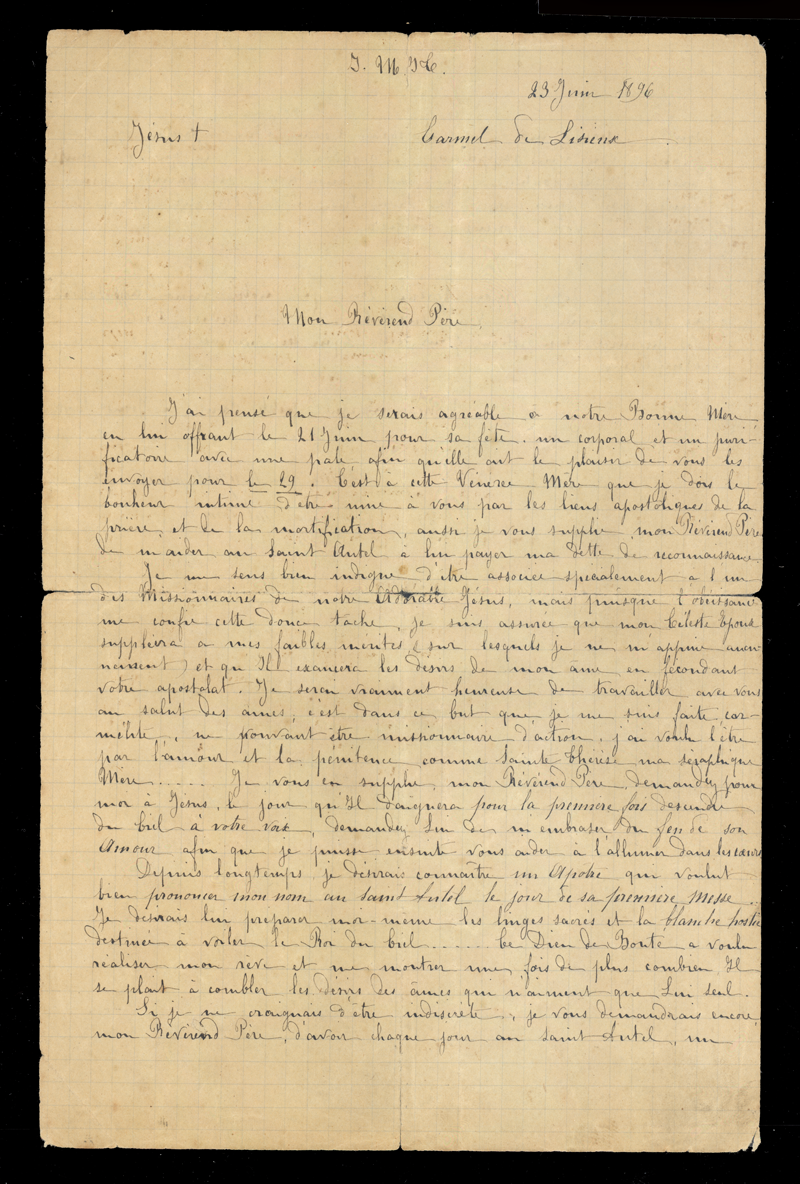 J. M. J. T.
23 Juin 1896
Jésus †
Carmel de Lisieux
Mon Révérend Père,
J'ai pensé que je serais agréable à notre Bonne Mère
en lui offrant le 21 Juin pour sa fête. un corporal et un puri-
ficatoire avec une pale afin qu'elle ait le plaisir de vous les
envoyer pour le 29. C'est à cette Vénérée Mère que je dois le
bonheur intime d'être unie à vous par les liens apostoliques de la
prière et de la mortification, aussi je vous supplie, mon Révérend Père
de m'aider au Saint Autel à lui payer ma dette de reconnaissance.
Je me sens bien indigne d'être associée spécialement à l'un
des Missionnaires de notre Adorable Jésus, mais puisque l'obéissance
me confie cette douce tâche, je suis assurée que mon Céleste Epoux
suppléera à mes faibles mérites (sur lesquels je ne m'appuie aucu-
nement) et qu'Il exaucera les désirs de mon âme en fécondant
votre apostolat. Je serai vraiment heureuse de travailler avec vous
au salut des âmes, c'est dans ce but que je me suis faite car-
mélite, ne pouvant être missionnaire d'action, j'ai voulu l'être
par l'amour et la pénitence comme Sainte Thérèse ma séraphique
Mère ..... Je vous en supplie, mon Révérend Père, demandez pour
moi à Jésus, le jour qu'Il daignera pour la première fois descendre
du Ciel à votre voix, demandez Lui de m'embraser du feu de son
Amour afin que je puisse ensuite vous aider à l'allumer dans les cœurs
Depuis longtemps je désirais connaître un Apôtre qui voulut
bien prononcer mon nom au Saint Autel le jour de sa première Messe...
Je désirais lui préparer moi-même les linges sacrés et la blanche hostie
destinée à voiler le Roi du Ciel ...... Ce Dieu de Bonté a voulu
réaliser mon rêve et me montrer une fois de plus combien Il
se plaît à combler les désirs des âmes qui n'aiment que Lui seul.
Si je ne craignais d'être indiscrète, je vous demanderais encore,
mon Révérend Père, d'avoir chaque jour au Saint Autel, un